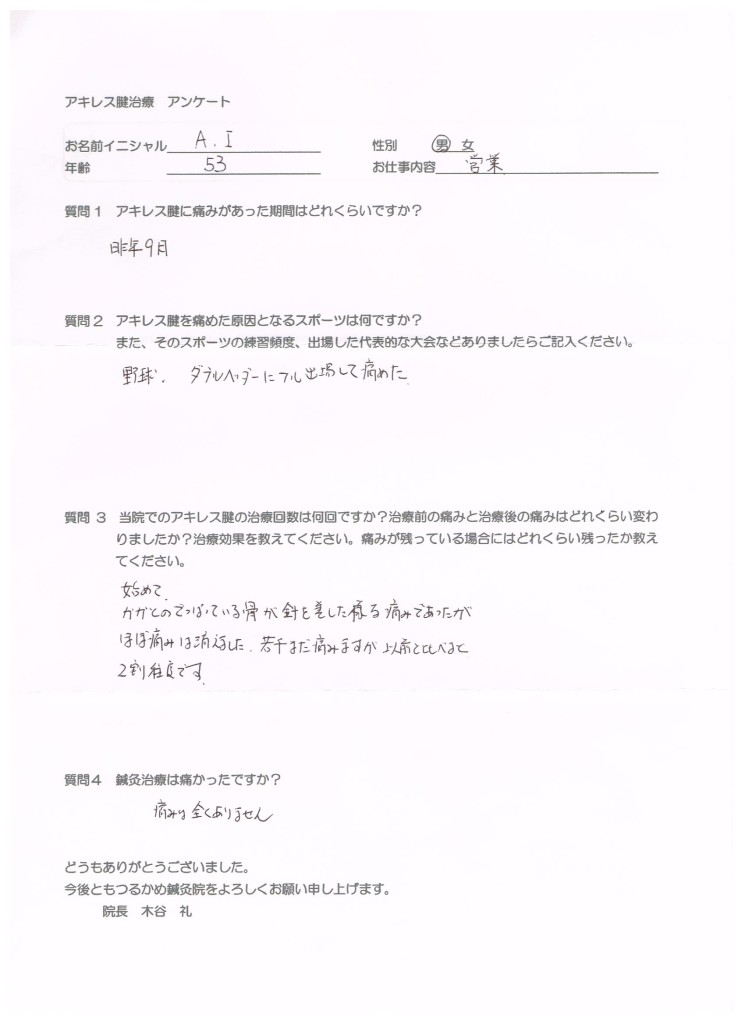 アキレス腱治療 アンケート
お名前イニシャル A.I 性別 男 女
年齢 53 お仕事内容 営業
質問1 アキレス腱に痛みがあった期間はどれくらいですか？
昨年9月
質問2 アキレス腱を痛めた原因となるスポーツは何ですか？
また、そのスポーツの練習頻度、出場した代表的な大会などありましたらご記入ください。
野球. ダブルヘッダーにフル出場して痛めた.
質問 3 当院でのアキレス腱の治療回数は何回ですか？治療前の痛みと治療後の痛みはどれくらい変わ
りましたか？治療効果を教えてください。痛みが残っている場合にはどれくらい残ったか教え
てください。
始めて.
かかとのでっぱている骨が針を差した様な痛みであったが
ほぼ痛みは消えました. 若干まだ痛みますが以前と比べると
2割程度です.
質問4 鍼灸治療は痛かったですか？
痛みは全くありません
どうもありがとうございました。
今後ともつるかめ鍼灸院をよろしくお願い申し上げます。
院長 木谷 礼